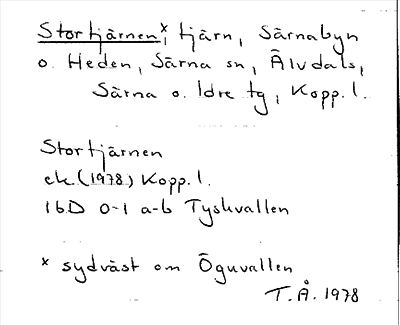 Stortjärnen,ˣ tjärn, Särnabyn
o. Heden, Särna sn, Älvdals,
Särna o. Idre tg, Kopp. l.
Stortjärnen
ek. (1978) Kopp. l.
16D 0-1 a-b Tyskvallen
x sydväst om Öguvallen
T.Å. 1978